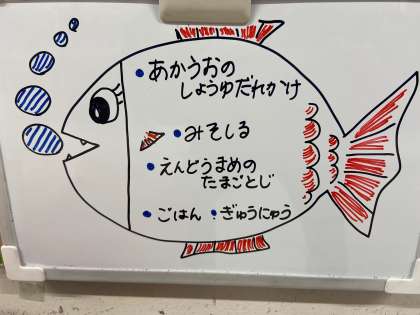 • あかうおの
しょうゆだれかけ
• みそしる
• えんどうまめの
たまごとじ
• ごはん • ぎゅうにゅう